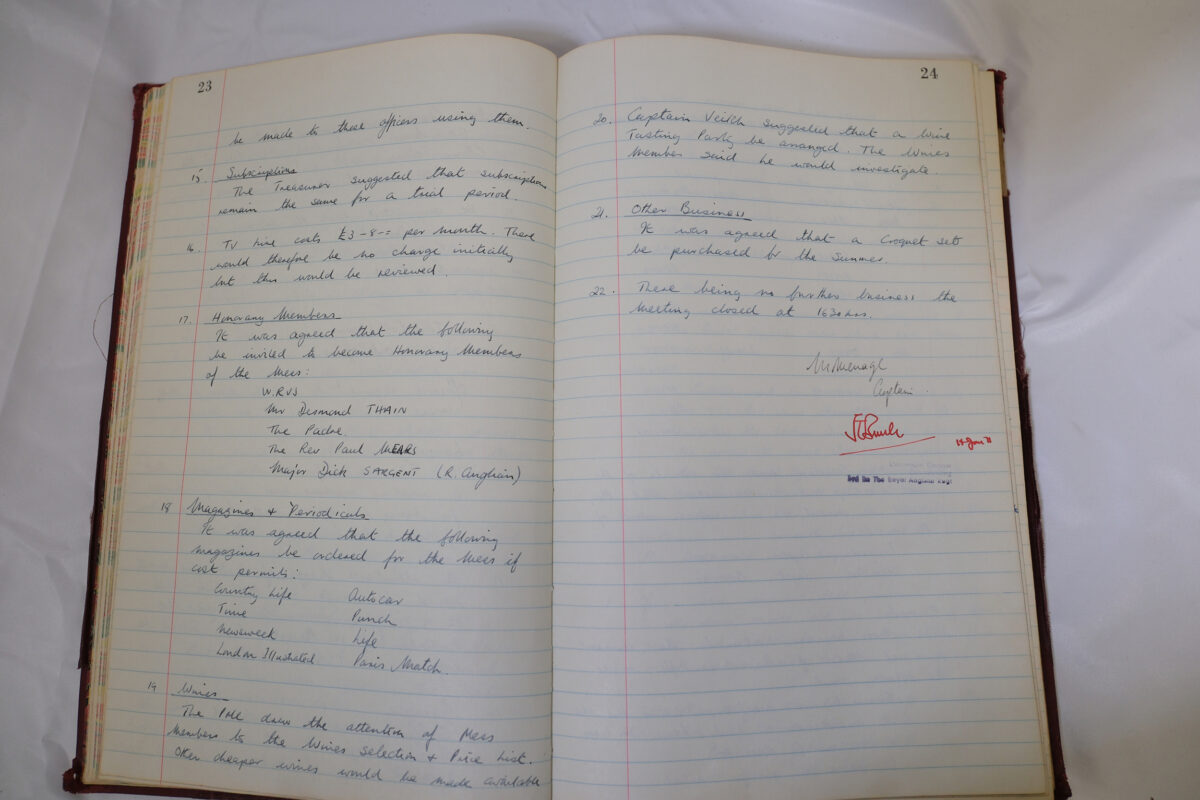 23
be made to those officers using them.
15. Subscriptions
The Treasurer suggested that subscriptions
remain the same for a trial period.
16. TV hire costs £3-8-- per month. There
would therefore be no change initially
but this would be reviewed.
17. Honorary Members
It was agreed that the following
be invited to become Honorary Members
of the Mess:
W.RVS
Mr Desmond THAIN
The Padre
The Rev Paul MEARS
Major Dick SARGENT (R. Anglian)
18 Magazines + Periodicals
It was agreed that the following
magazines be ordered for the Mess if
cost permits:
Country Life Autocar
Time Punch
Newsweek Life
London Illustrated Paris Match.
19 Wines
The PMC drew the attention of Mess
Members to the Wines selection + Price List.
Other cheaper wines would be made available
24
20. Captain Veitch suggested that a Wine
Tasting Party be arranged. The Wines
Member said he would investigate.
21. Other Business
It was agreed that a Croquet set
be purchased for the Summer.
22. There being no further business the
meeting closed at 1630 hrs.
Captain.
3rd Bn The Royal Anglian Regt